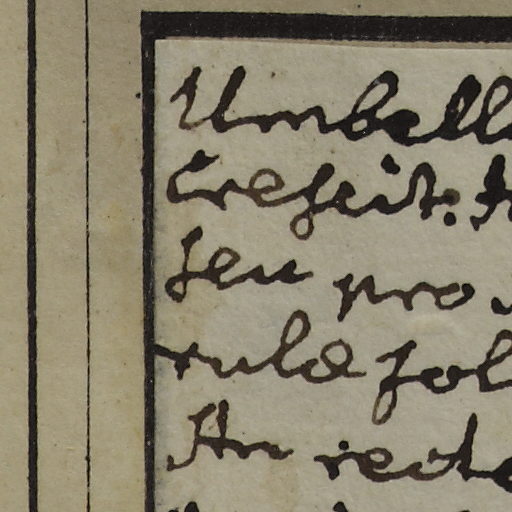 Umbell
Crescit.
seu pro
rulæ fol
An recte